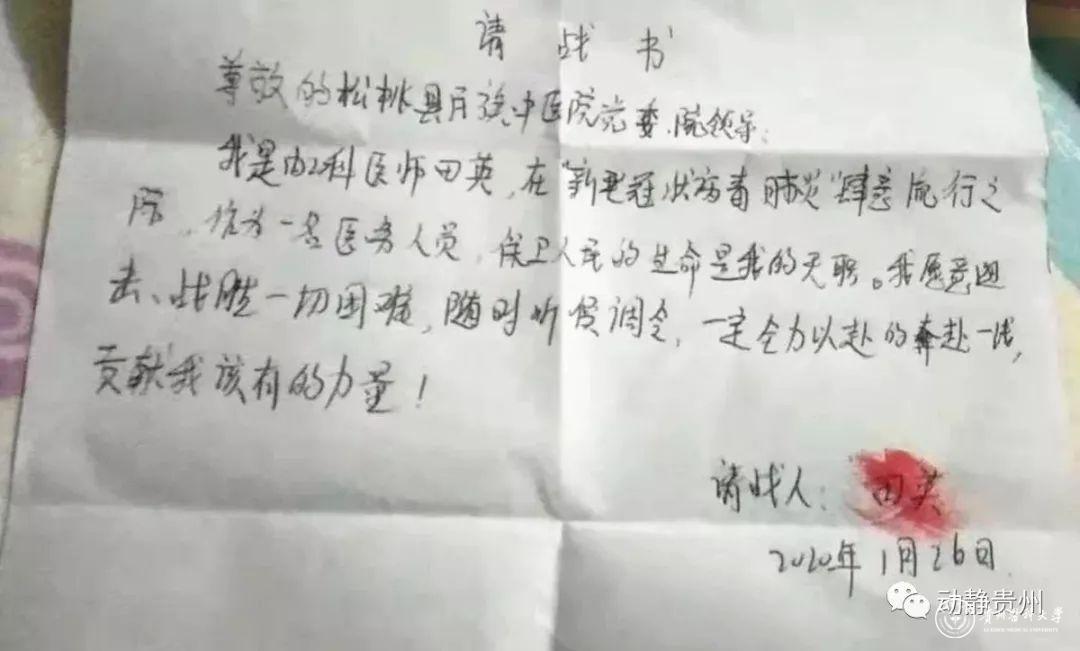 请战书
尊敬的松桃县民族中医院党委、院领导:
我是内2科医师田英,在"新型冠状病毒肺炎"肆意流行之
际,作为一名医务人员,保卫人民的生命是我的天职。我愿意迎
去、战胜一切困难,随时听候调令,一定全力以赴的奔赴一线,
贡献我该有的力量!
请战人:田英
2020年1月26日
动静贵州
贵州医科大学
GUIZHOU MEDICAL UNIVERSITY